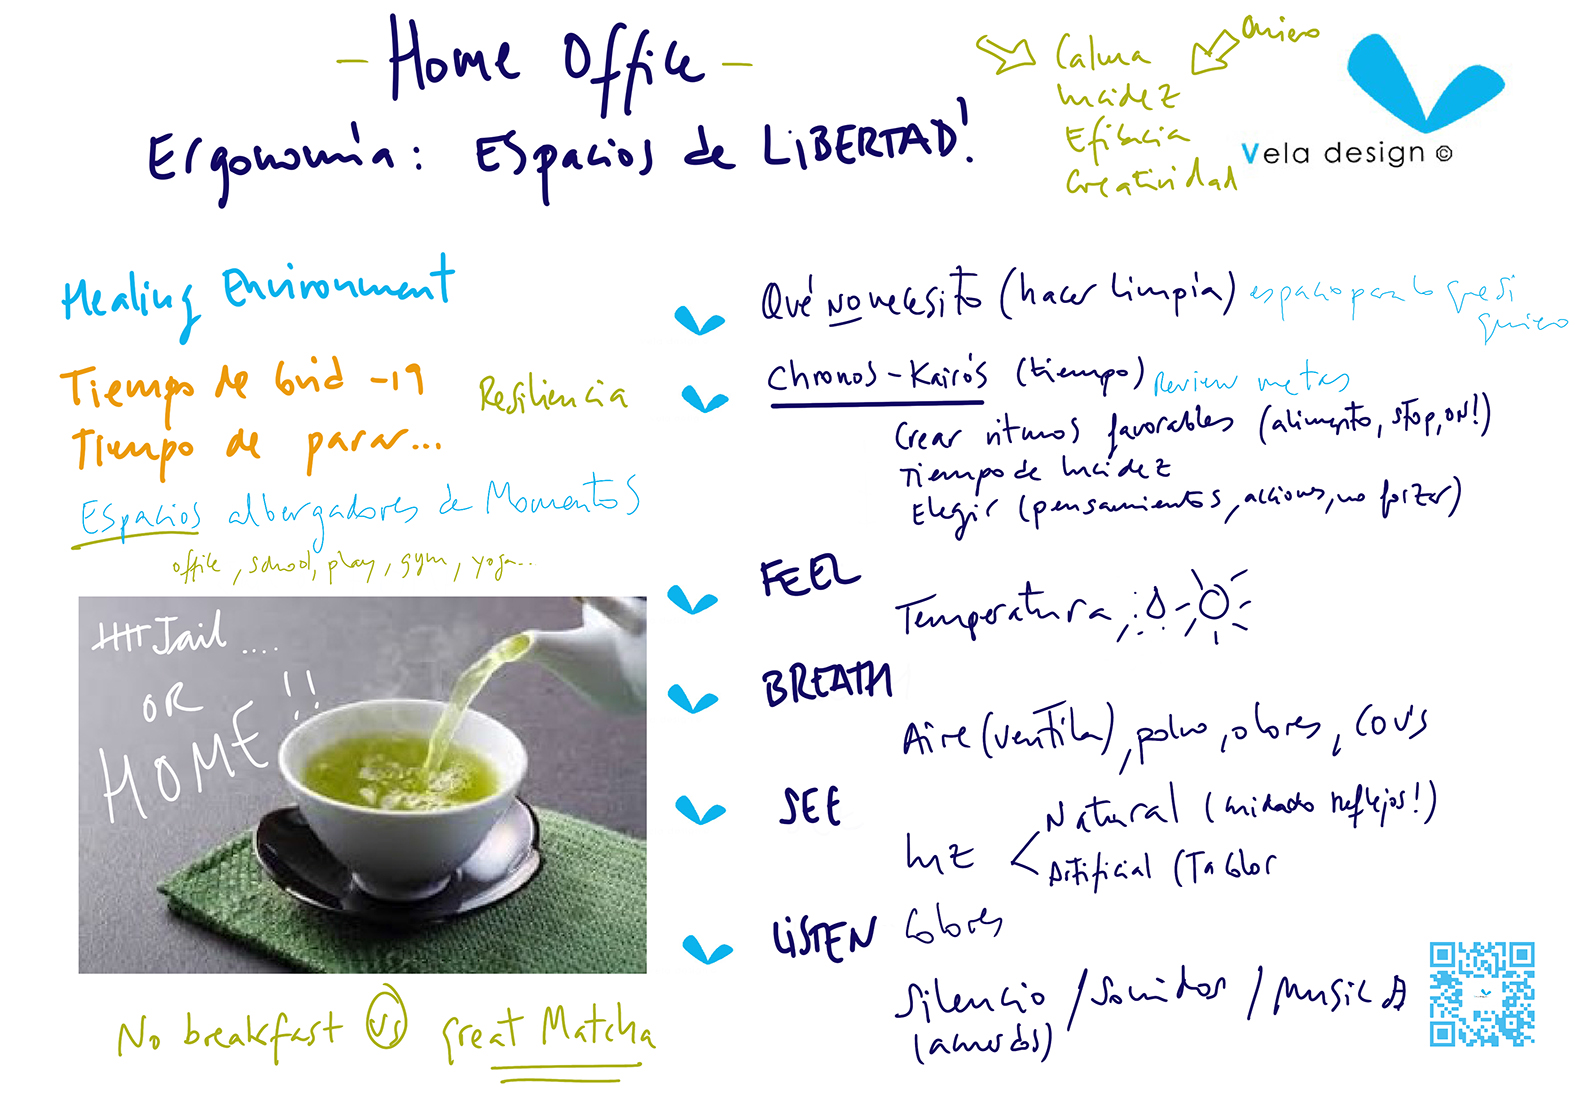 - Home Office -
Ergonomía: Espacios de LIBERTAD!
Calma
lucidez
Eficacia
Creatividad
Quiero
Vela design ©
Healing Environment
Tiempo de Covid -19
Resiliencia
Tiempo de parar...
Espacios albergadores de Momentos
office, school, play, gym, yoga...
Jail ....
OR
HOME!!
No breakfast vs great Matcha
Qué no necesito (hacer limpia) espacio para lo que si
quiero
Chronos - Kairós (tiempo) Review metas
Crear ritmos favorables (alimento, stop, on!)
Tiempo de lucidez
Elegir (pensamientos, acciones, no forzar)
FEEL
Temperatura
BREATH
Aire (ventila), polvo, olores, COV's
SEE
luz
Natural (cuidado reflejos!)
Artificial (Tª Color
Colores
LISTEN
Silencio / Sonidos / MUSICA
(acuerdos)